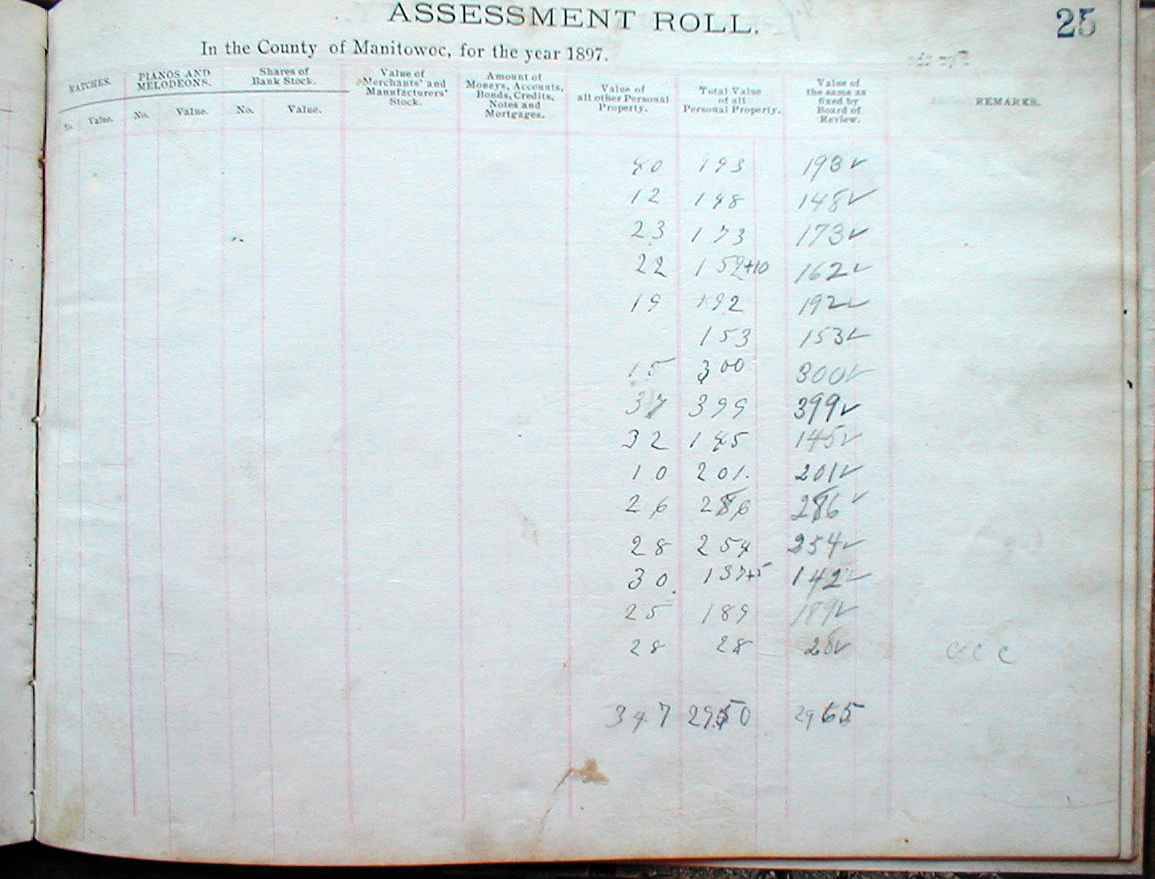 ASSESSMENT ROLL. 25
In the County of Manitowoc, for the year 1897.
WATCHES. PIANOS AND MELODEONS. Shares of Bank Stock. Value of Merchants' and Manufacturers' Stock. Amount of Moneys, Accounts, Bonds, Credits, Notes and Mortgages. Value of all other Personal Property. Total Value of all Personal Property. Value of the same as fixed by Board of Review. REMARKS.
Value. No. Value. No. Value.
40 193 193✓
12 148 148✓
23 173 173✓
22 152+10 162✓
19 192 192✓
153 153✓
15 300 300✓
37 399 399✓
32 145 145✓
10 201. 201✓
26 286 286✓
28 254 254✓
30. 137+5 142✓
25 189 189✓
28 28 28✓ c c c
347 2950 2965